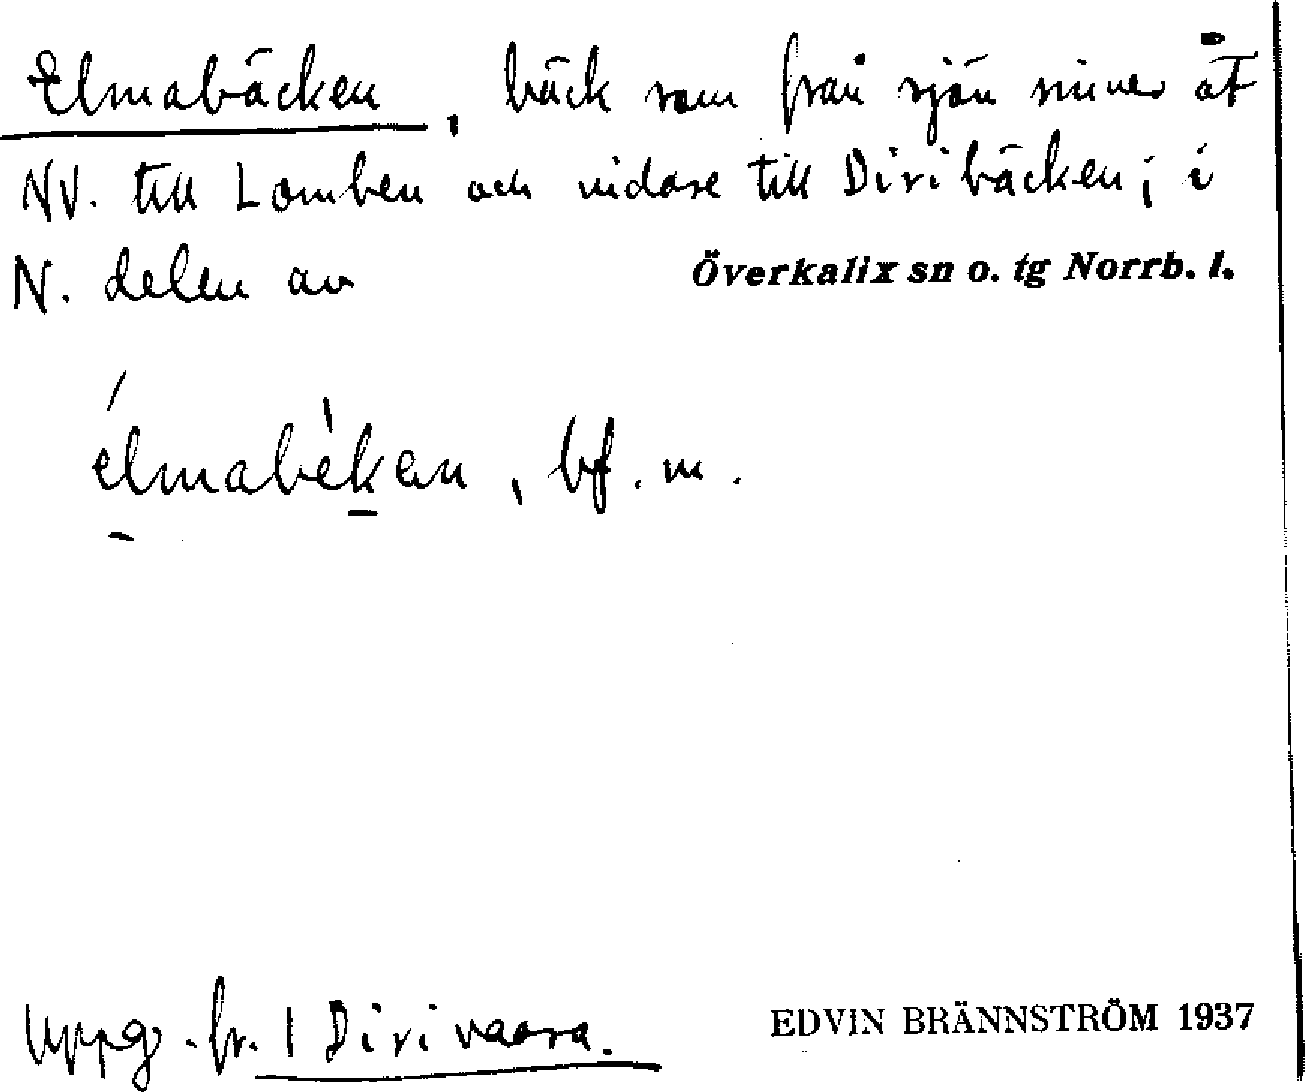 Elmabäcken, bäck som från sjön rinner åt
NV. till Lomben och vidare till Diribäcken; i
N. delen av Överkalix sn o. tg Norrb. l.
élmabèkan, bf. m.
Uppg. fr. 1 Dirivaara.
EDVIN BRÄNNSTRÖM 1937